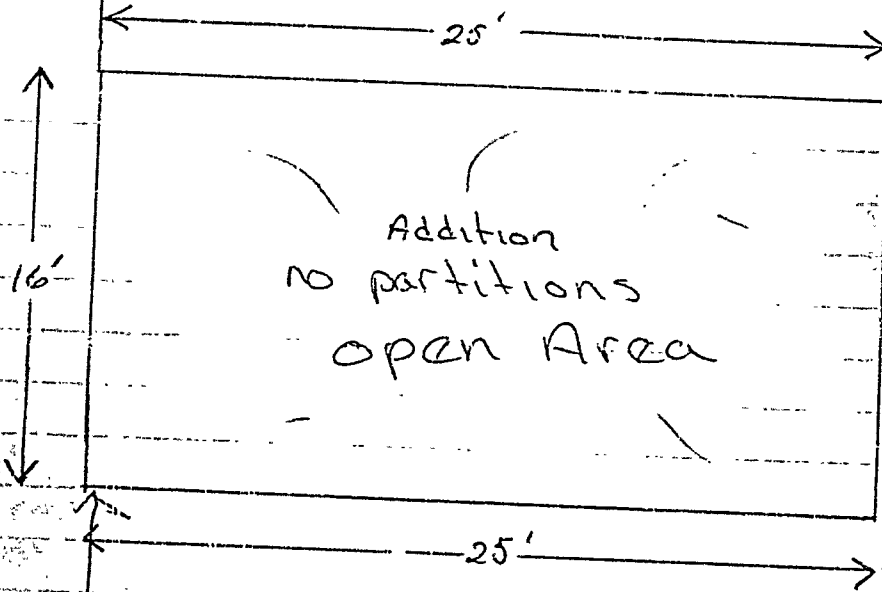 25'
16'
Addition
no partitions
open Area
25'